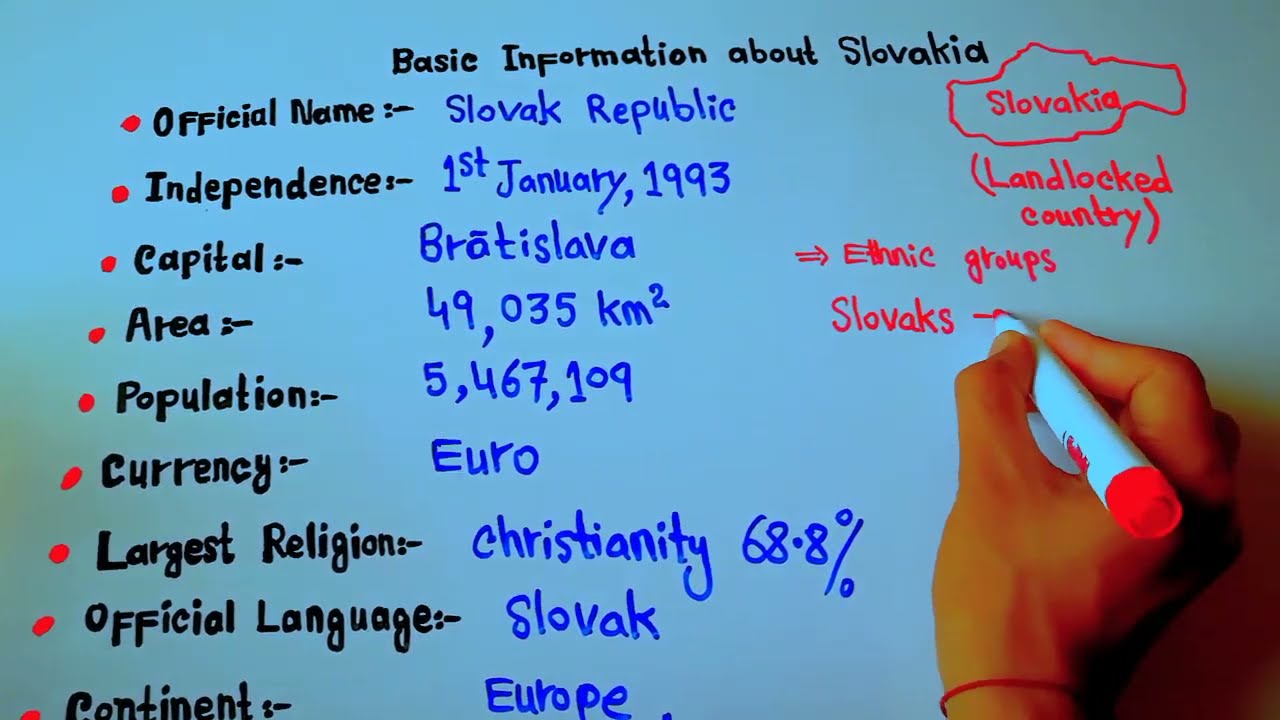 Basic Information about Slovakia
Official Name:- Slovak Republic
Independence:- 1st January, 1993
Capital:- Brātislava
Area:- 49,035 km²
Population:- 5,467,109
Currency:- Euro
Largest Religion:- christianity 68.8%
Official Language:- Slovak
Continent:- Europe.
Slovakia
(Landlocked
country)
⇒ Ethnic groups
Slovaks -